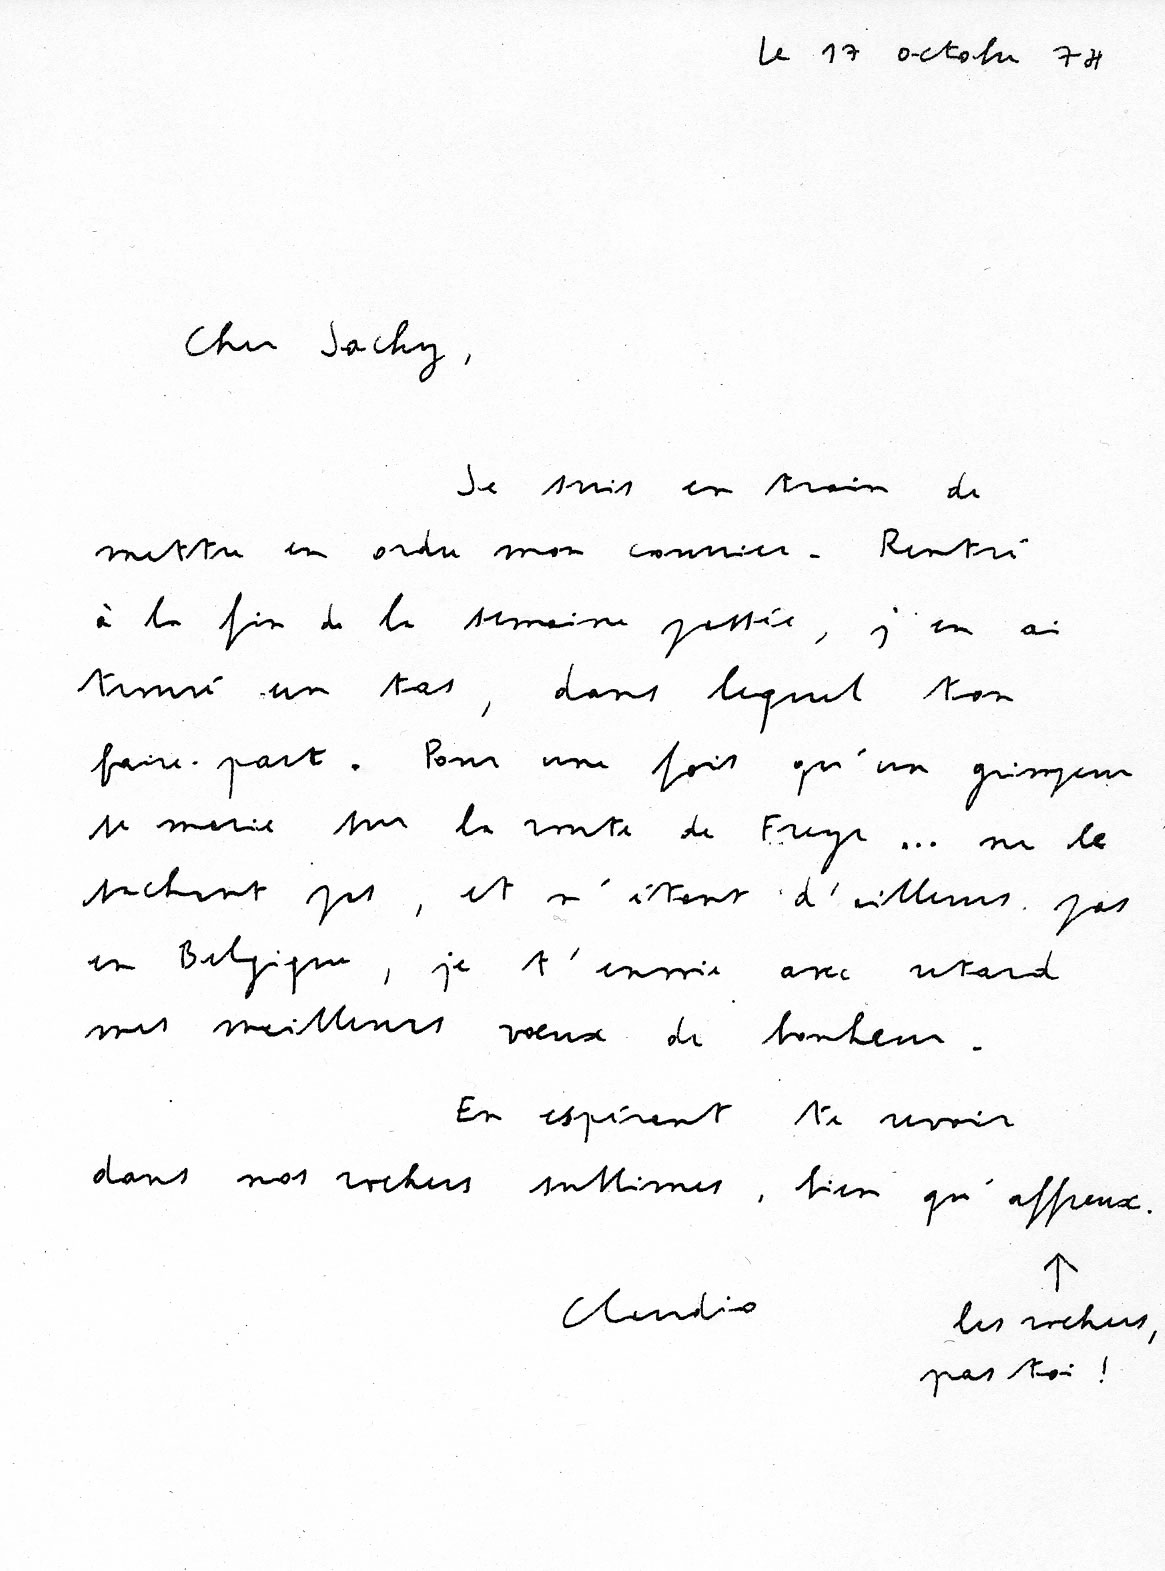 Le 17 octobre 78
Cher Jacky,
Je suis en train de
mettre en ordre mon courrier. Rentré
à la fin de la semaine passée, j'en ai
trouvé un tas, dans lequel ton
faire-part. Pour une fois qu'un grimpeur
se marie sur la route de Freyr ... ne le
sachant pas, et n'étant d'ailleurs pas
en Belgique, je t'envoie avec retard
mes meilleurs vœux de bonheur.
En espérant te revoir
dans nos rochers sublimes, bien qu'affreux.
↑
Claudio les rochers,
pas toi !